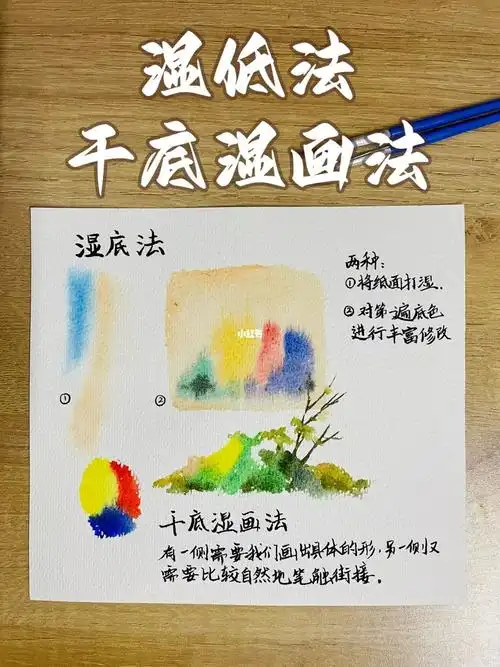 湿低法
干底湿画法
湿底法
两种：
①将纸面打湿.
②对第一遍底色
进行丰富修改
小红书
①
②
干底湿画法
有一侧需要我们画出具体的形，另一侧又
需要比较自然地笔触衔接。